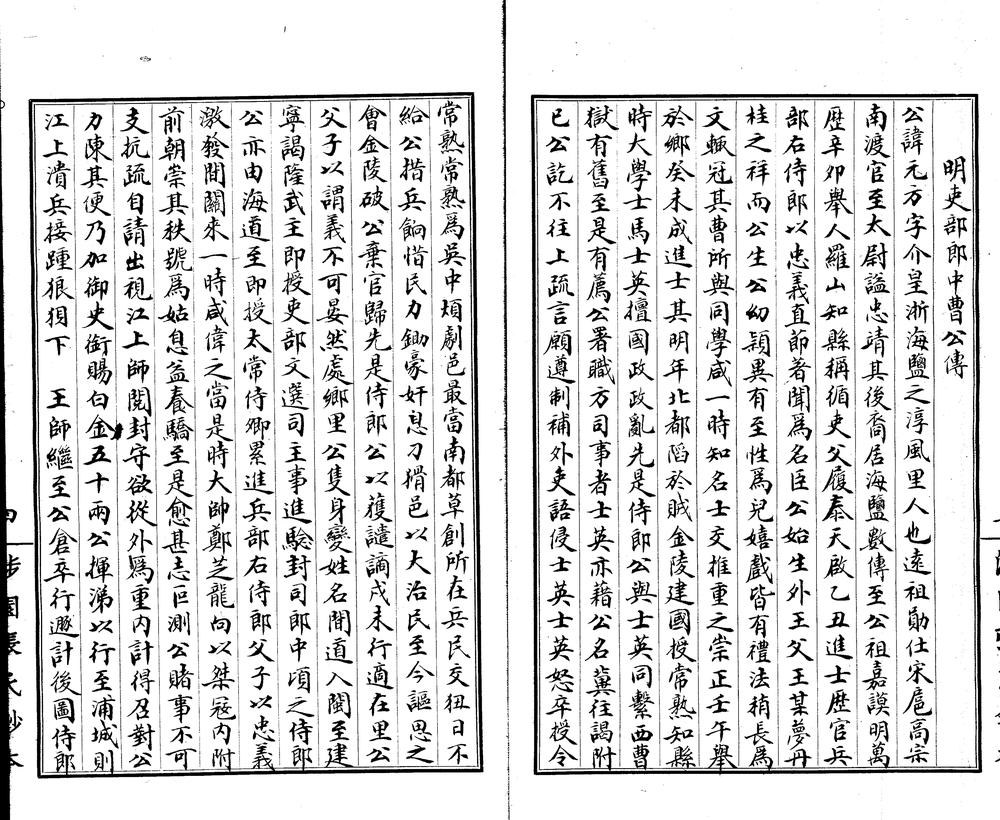 明吏部郎中曹公傳
公諱元方字介皇浙海鹽之淳風里人也遠祖勛仕宋扈高宗
南渡官至太尉謚忠靖其後裔居海鹽數傳至公祖嘉謨明萬
歷辛卯舉人羅山知縣稱循吏父履泰天啟乙丑進士歷官兵
部右侍郎以忠義直節著聞為名臣公始生外王父王某夢丹
桂之祥而公生公幼穎異有至性為兒嬉戲皆有禮法稍長為
文輒冠其曹所與同學咸一時知名士交推重之崇正壬午舉
於鄉癸未成進士其明年北都陷於賊金陵建國授常熟知縣
時大學士馬士英擅國政政亂先是侍郎公與士英同繫西曹
獄有舊至是有薦公署職方司事者士英亦藉公名冀往謁附
已公訖不往上疏言願遵制補外吏語侵士英士英怒卒授令
常熟常熟為吳中煩劇邑最當南都草創所在兵民交紐日不
給公措兵餉惜民力鋤豪奸息刁猾邑以大治民至今謳思之
會金陵破公棄官歸先是侍郎公以獲譴謫戍未行適在里公
父子以謂義不可晏然處鄉里公隻身變姓名間道入閩至建
寧謁隆武主即授吏部文選司主事進驗封司郎中頃之侍郎
公亦由海道至即授太常侍卿累進兵部右侍郎父子以忠義
激發間關來一時咸偉之當是時大帥鄭芝龍向以桀寇內附
前朝崇其秩號為姑息益養驕至是愈甚志叵測公睹事不可
支抗疏自請出視江上師閱封守欲從外為重內計得召對公
力陳其便乃加御史銜賜白金五十兩公揮涕以行至浦城則
江上潰兵接踵狼狽下　王師繼至公倉卒行遯計後圖侍郎